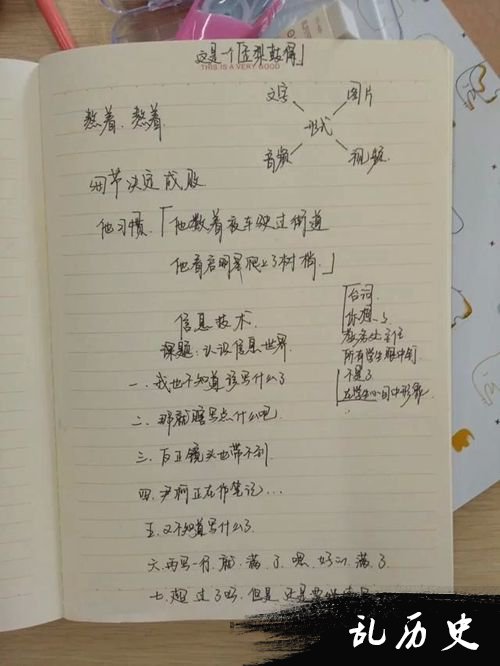 这是一个
THIS IS A VERY GOOD
文字 图片
形式
音频 视频
熬着、熬着
细节决定成败
他习惯「他数着夜车驶过街道
他看启明星爬上了树梢」
信息技术
课题:认识信息世界
台词
你想
教务处主任
所有学生眼中钉
不是了
在学生心目中形象
一、我也不知道该写什么了
二、那就随写点什么吧
三、反正镜头也带不到
四、尹柯正在作笔记...
五、又不知道写什么了
六、再写一行,就,满,了,嗯,好的,满了
七、超过了吗,但是,还是要
乱历史